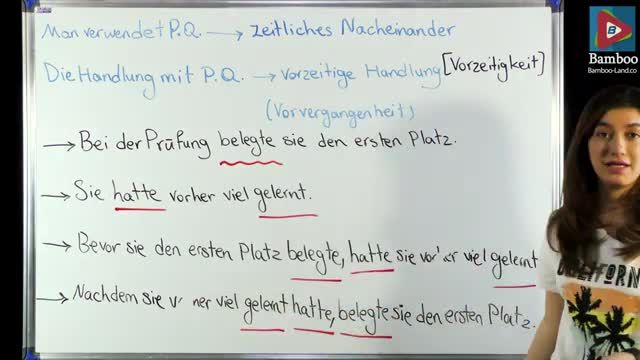 Man verwendet P.Q. → zeitliches Nacheinander
Die Handlung mit P.Q. → vorzeitige Handlung [Vorzeitigkeit]
(Vorvergangenheit)
→ Bei der Prüfung belegte sie den ersten Platz.
→ Sie hatte vorher viel gelernt.
→ Bevor sie den ersten Platz belegte, hatte sie viel gelernt
→ Nachdem sie viel gelernt hatte, belegte sie den ersten Platz.
B
Bamboo
Bamboo-Land.co
CALIFORN